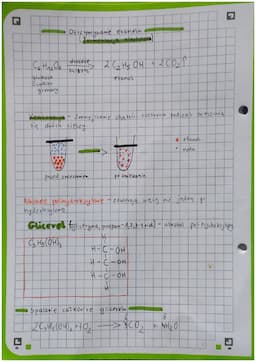 Otrzymywanie etanolu
(fermentacja alkoholowa)
C₆H₁₂O₆ drożdże → 2 C₂H₅OH + 2CO₂↑
glukoza etanol
cukier
gronowy
Kontrakcja - zmniejszenie objętości roztworu podczas mieszania
się dwóch cieczy
• etanol
• woda
przed zmieszaniem po zmieszaniu
Alkohole polihydroksylowe - zawierają więcej niż jedną gr.
hydroksylową
Glicerol (gliceryna, propan-1,2,3-triol) - alkohol polihydroksylowy
C₃H₅(OH)₃
H
H-C-OH
H-C-OH
H-C-OH
H
Spalanie całkowite glicerolu
2C₃H₅(OH)₃ + 7O₂ → 6CO₂ + 8H₂O